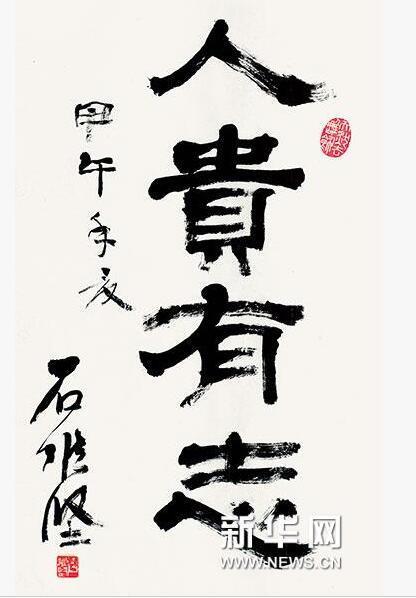 人貴有志
甲午年夏
石维坚
新华网
WWW.NEWS.CN